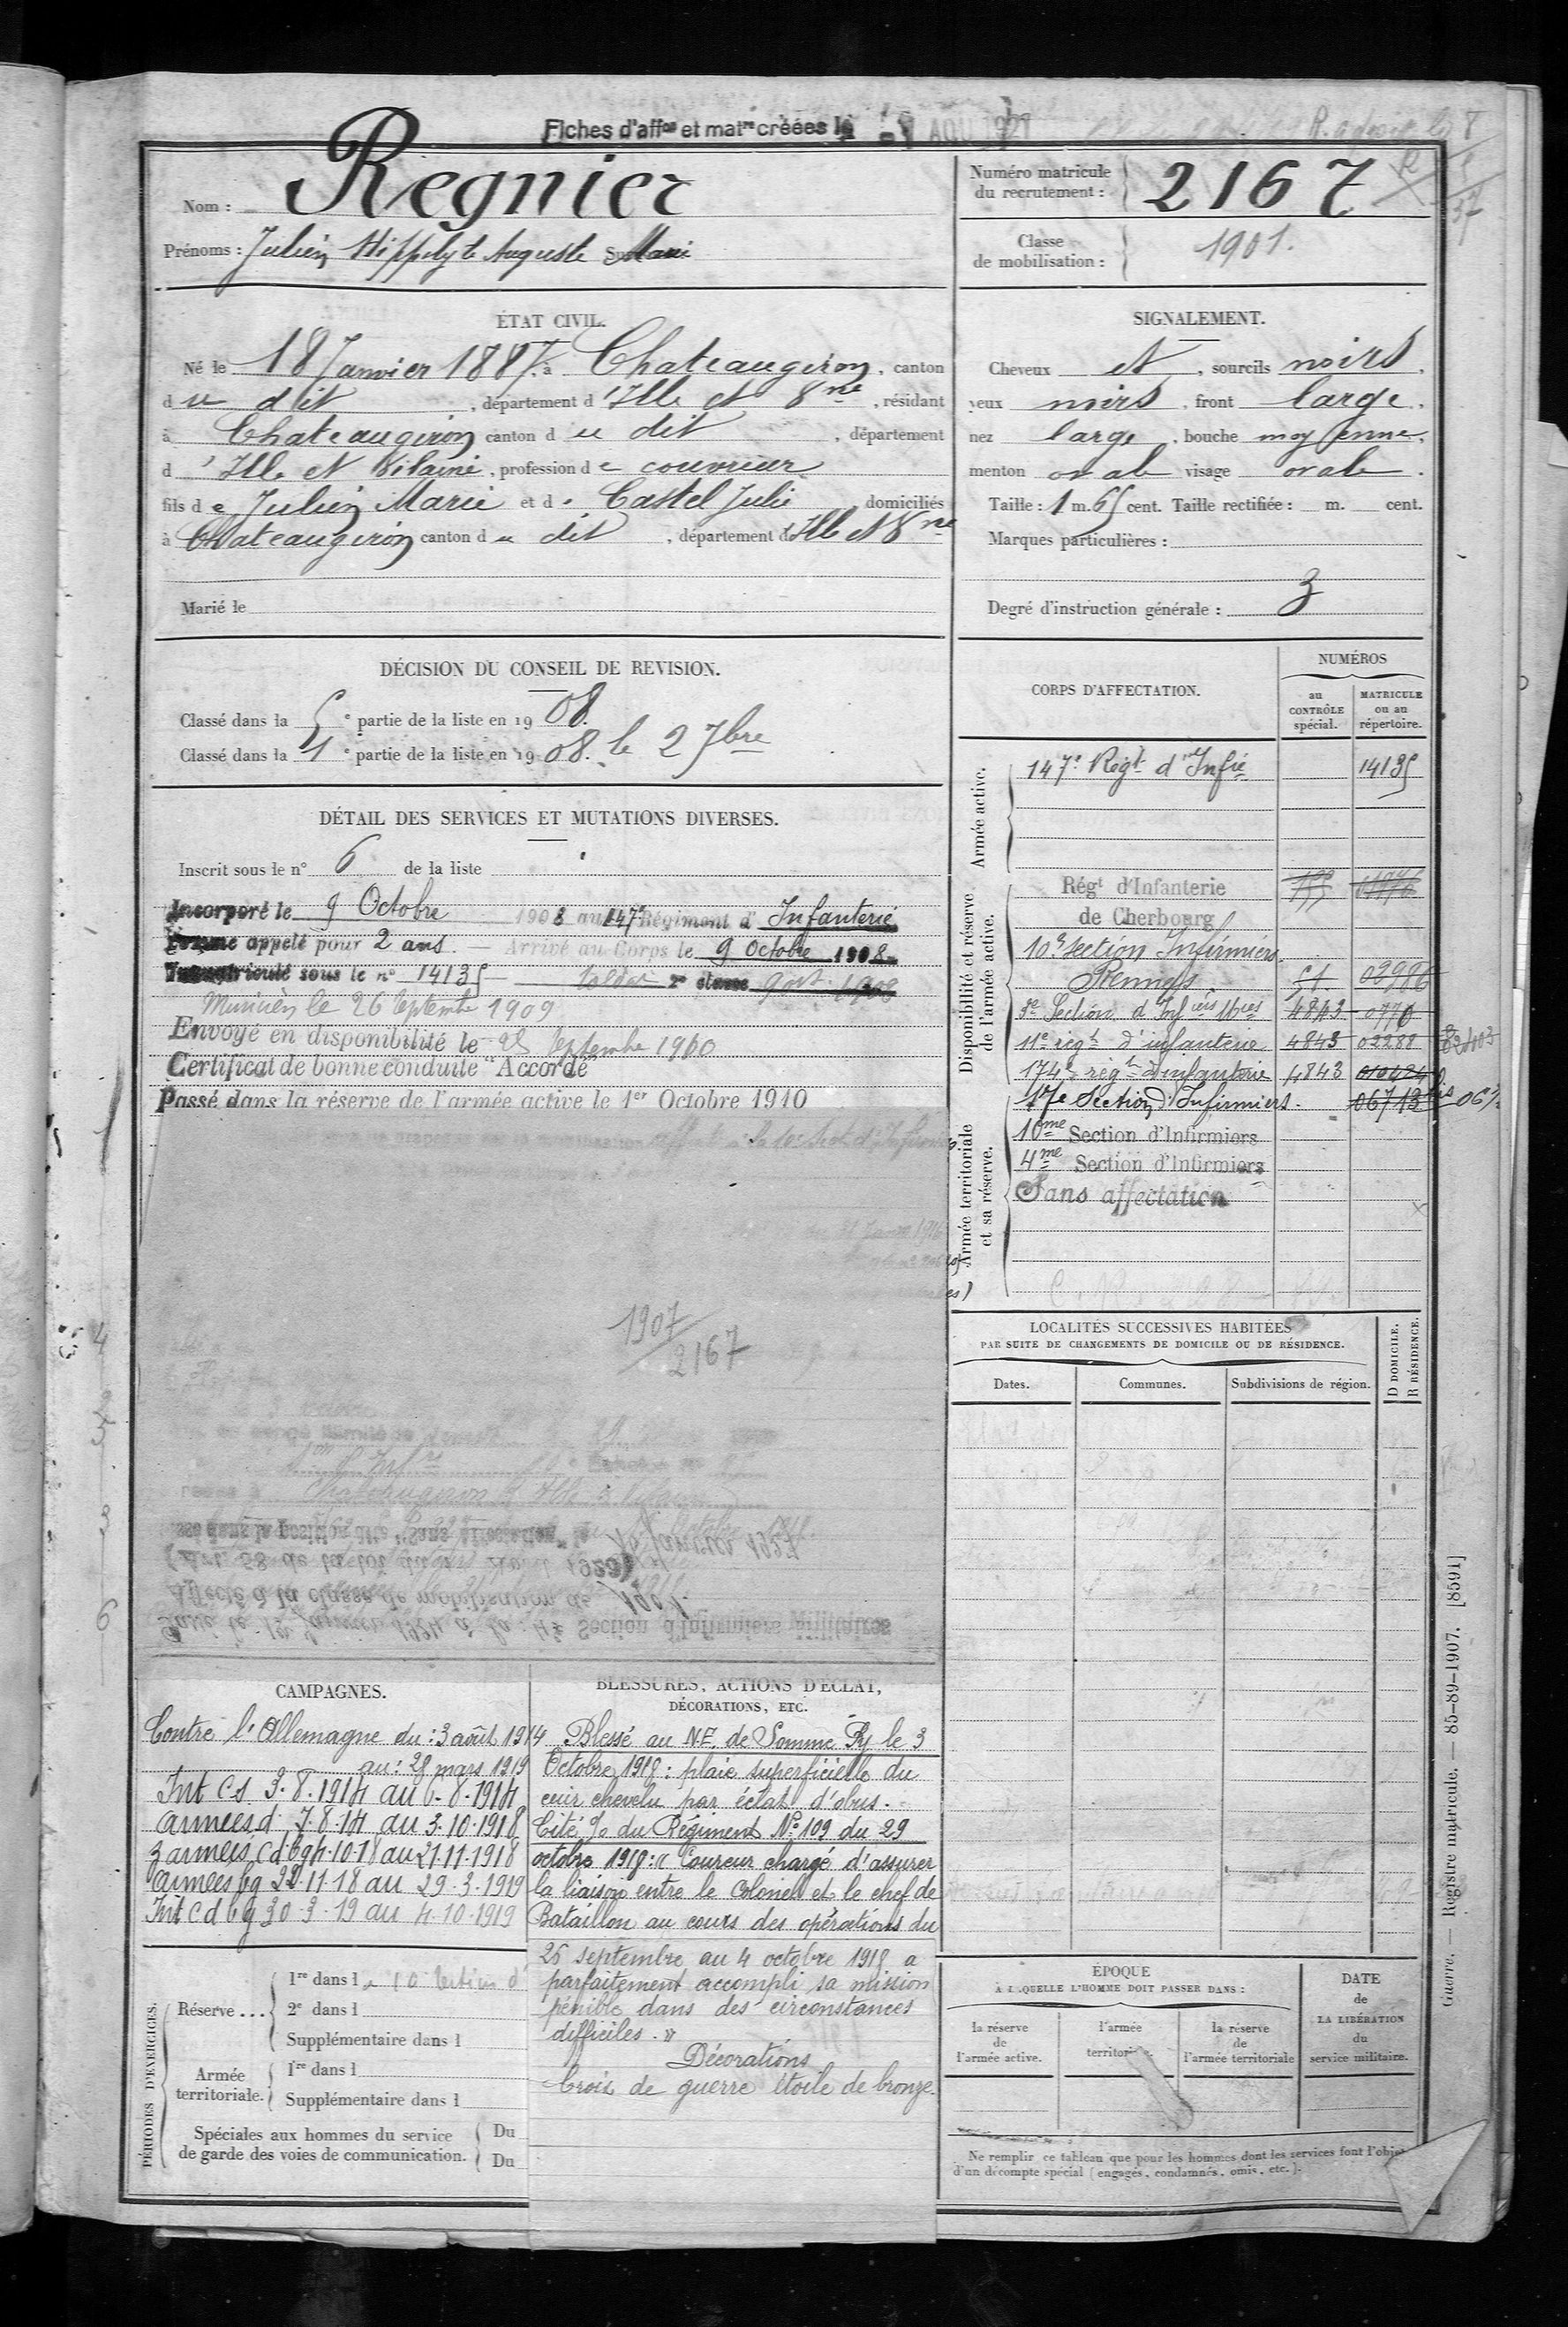 Fiches d'affon et matre créées le AOU
Nom : Regnier
Prénoms : Julien Hippolyte Auguste Marie
Numéro matricule
du recrutement : 2167
Classe
de mobilisation : 1901.
ÉTAT CIVIL.
Né le 18 Janvier 1887, à Chateaugiron, canton
du dit, département d'Ille et Vne, résidant
à Chateaugiron canton du dit, département
d'Ille et Vilaine, profession de couvreur
fils de Julien Marie et de Castel Julie domiciliés
à Chateaugiron canton du dit, département d'Ille et Vne
Marié le
SIGNALEMENT.
Cheveux et, sourcils noirs,
yeux noirs, front large,
nez large, bouche moyenne,
menton ovale visage ovale.
Taille : 1 m. 65 cent. Taille rectifiée : m. cent.
Marques particulières :
Degré d'instruction générale : 3
DÉCISION DU CONSEIL DE REVISION.
Classé dans la 5e partie de la liste en 1908.
Classé dans la 1e partie de la liste en 1908. le 2 7bre
DÉTAIL DES SERVICES ET MUTATIONS DIVERSES.
Inscrit sous le n° 6 de la liste
Incorporé le 9 Octobre 1908 au 147e Régiment d'Infanterie
Comme appelé pour 2 ans. — Arrivé au Corps le 9 octobre 1908
Immatriculé sous le n° 14135 — soldat 2e classe 9 oct 1908
Musicien le 26 Septembre 1909
Envoyé en disponibilité le 25 Septembre 1910
Certificat de bonne conduite "Accordé"
Passé dans la réserve de l'armée active le 1er Octobre 1910
1907
2167
Passé dans la position dite "Sans affectation" le 10 Janvier 1927
(Art. 58 de la loi du 1er Avril 1923)
Affecté à la classe de mobilisation de 1901.
Passé le 1er Janvier 1924 à la : 4e Section d'Infirmiers Militaires
CORPS D'AFFECTATION.
NUMÉROS
au
CONTRÔLE
spécial.
MATRICULE
ou au
répertoire.
Armée active.
147e Régt d'Infie 14135
Disponibilité et réserve
de l'armée active.
Régt d'Infanterie
de Cherbourg
10e Section Infirmiers
Rennes 51 02986
3e Section d'Infiers Mres 4843 0770
11e régt d'infanterie 4843 02288
174e régt d'infanterie 4843 010424
Armée territoriale
et sa réserve.
17e Section d'Infirmiers. 06713 bis
10me Section d'Infirmiers
4me Section d'Infirmiers
Sans affectation
LOCALITÉS SUCCESSIVES HABITÉES
PAR SUITE DE CHANGEMENTS DE DOMICILE OU DE RÉSIDENCE.
Dates.
Communes.
Subdivisions de région.
D DOMICILE.
R RÉSIDENCE.
CAMPAGNES.
Contre l'Allemagne du : 3 août 1914
au : 28 mars 1919
Int CS 3.8.1914 au 6.8.1914
armées d 7.8.14 au 3.10.1918
Z armées Cd bg 4.10.18 au 21.11.1918
armées bg 22.11.18 au 29.3.1919
Int Cd bg 30.3.19 au 4.10.1919
BLESSURES, ACTIONS D'ÉCLAT,
DÉCORATIONS, ETC.
Blessé au N.E. de Somme Py le 3
Octobre 1918 : plaie superficielle du
cuir chevelu par éclat d'obus.
Cité %o du Régiment N° 109 du 29
octobre 1918 : « Coureur chargé d'assurer
la liaison entre le Colonel et le chef de
Bataillon au cours des opérations du
26 septembre au 4 octobre 1918 a
parfaitement accompli sa mission
pénible dans des circonstances
difficiles. »
Décorations
Croix de guerre étoile de bronze.
PÉRIODES D'EXERCICES.
Réserve ...
1re dans la 10 Section d'
2e dans l
Supplémentaire dans l
Armée
territoriale.
1re dans l
Supplémentaire dans l
Spéciales aux hommes du service
de garde des voies de communication.
Du
Du
ÉPOQUE
À LAQUELLE L'HOMME DOIT PASSER DANS :
la réserve
de
l'armée active.
l'armée
territoriale.
la réserve
de
l'armée territoriale
DATE
de
LA LIBÉRATION
du
service militaire.
Ne remplir ce tableau que pour les hommes dont les services font l'objet
d'un décompte spécial (engagés, condamnés, omis, etc.).
Guerre. — Registre matricule. — 85-89-1907. [8591]